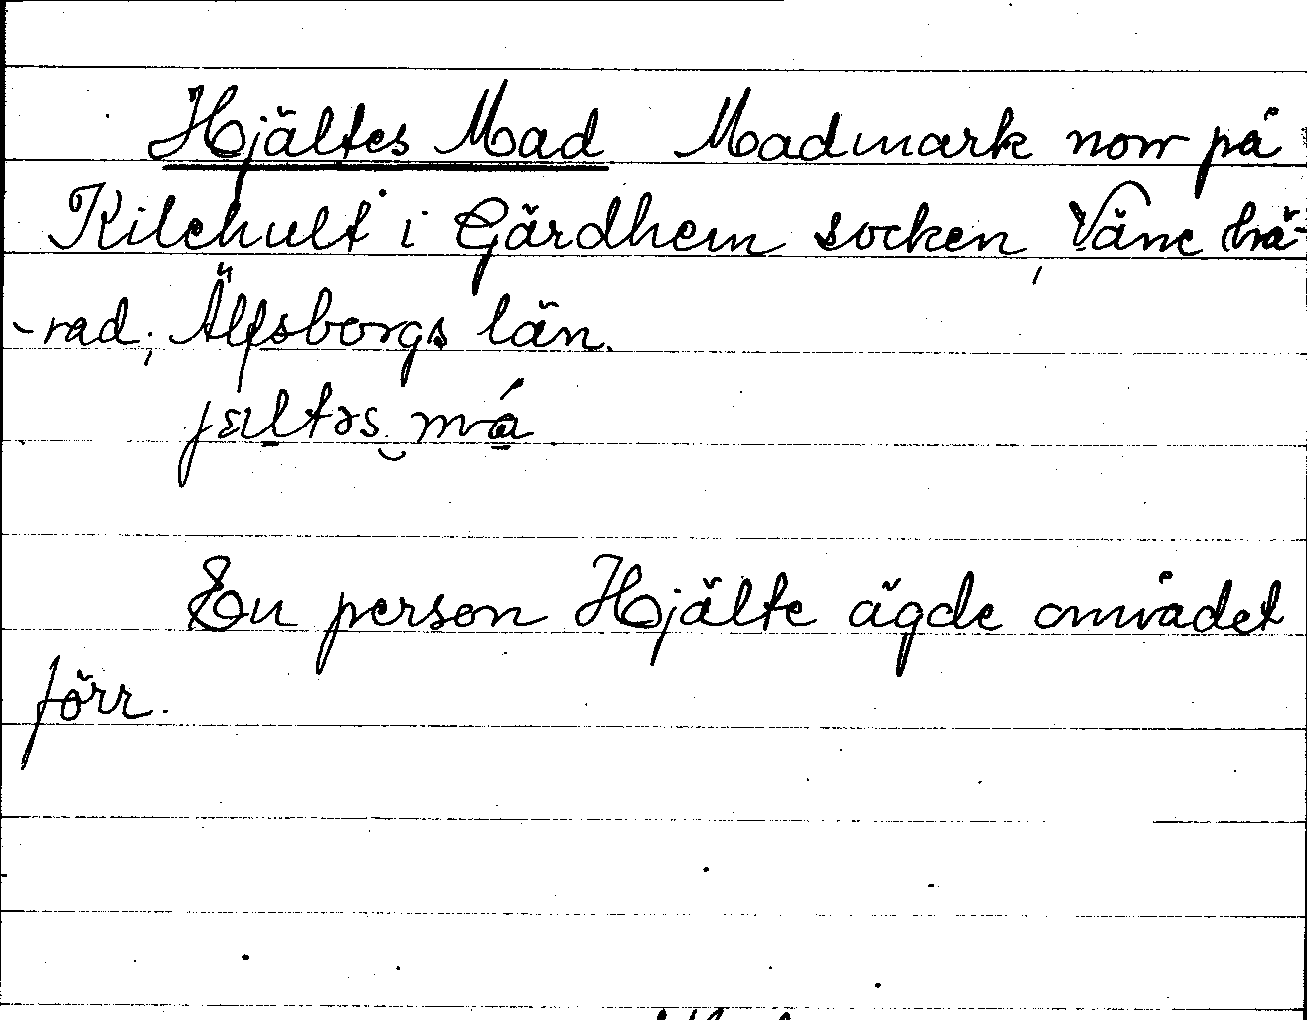 Hjältes Mad Madmark norr på
Kilehult i Gärdhem socken, Väne hä-
-rad, Älfsborgs län.
jæltəs‿má
En person Hjälte ägde området
förr.